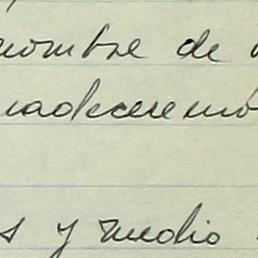 nombre de
adeceremo
s y medio